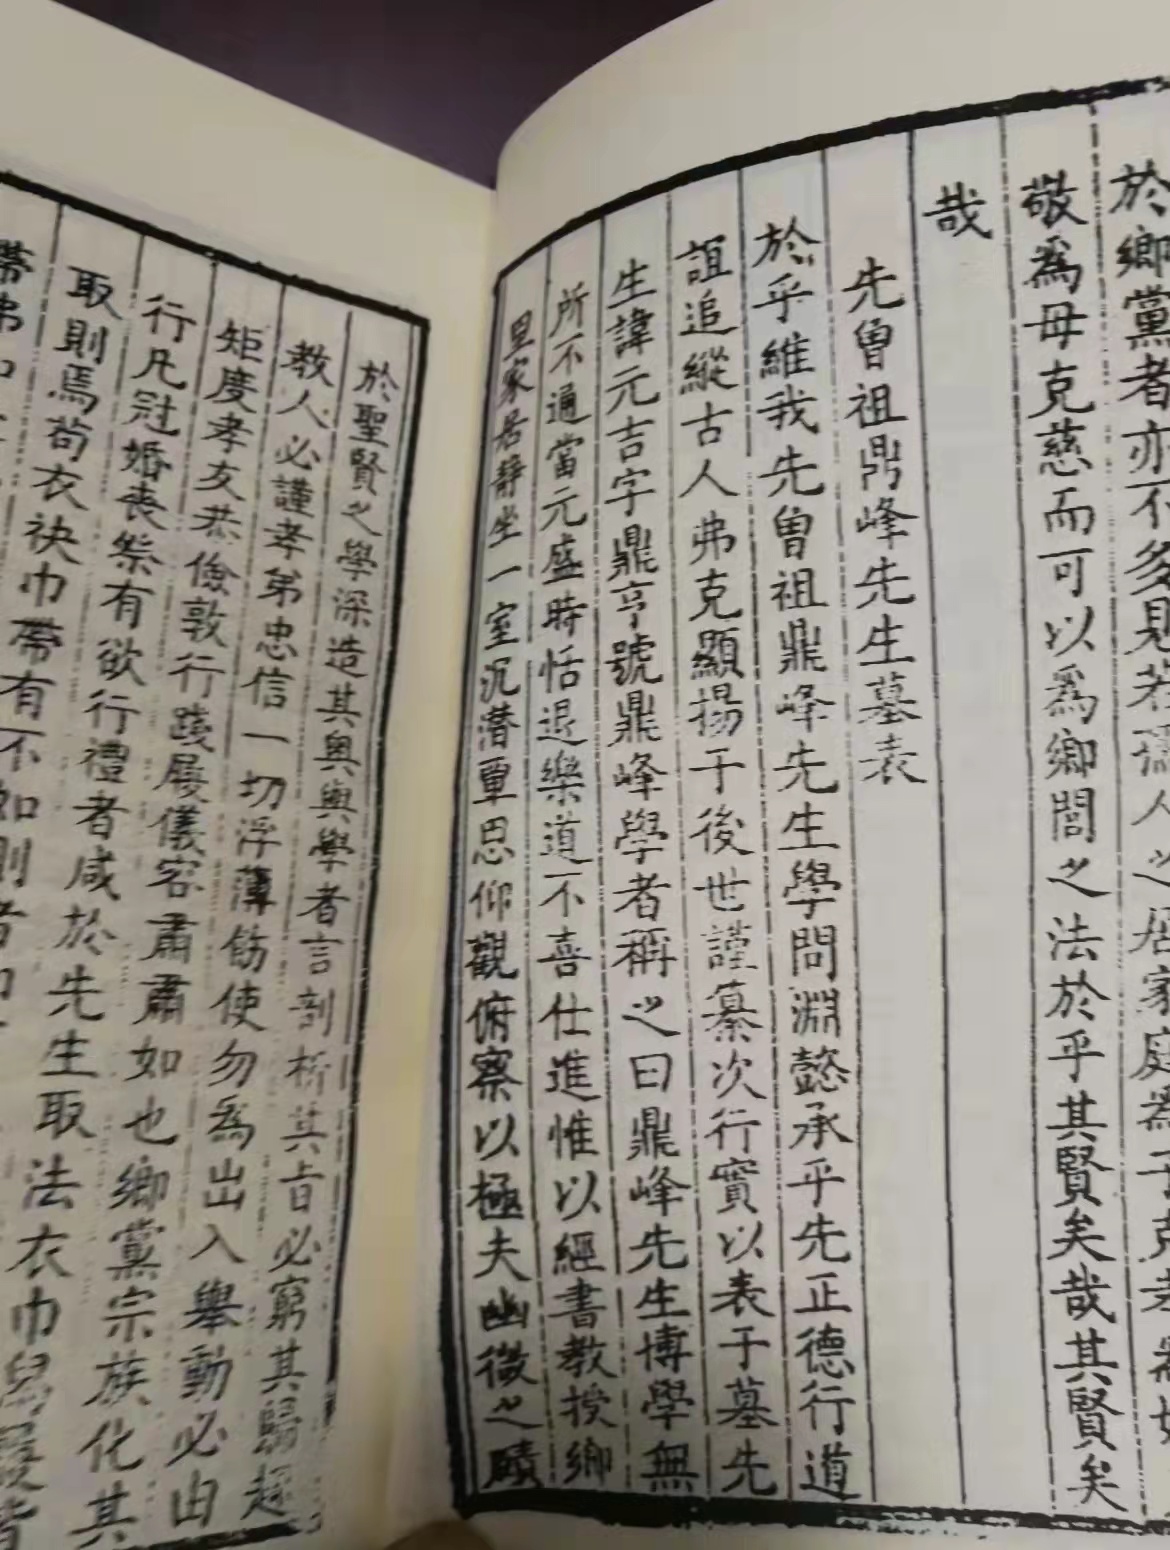 於鄉黨者亦不多見若孺人之居家庭為子克孝
敬爲母克慈而可以爲鄉閭之法於乎其賢矣哉其賢矣
哉
先曾祖鼎峰先生墓表
於乎維我先曾祖鼎峰先生學問淵懿承乎先正德行道
誼追縱古人弗克顯揚于後世謹纂次行實以表于墓先
生諱元吉字鼎亨號鼎峰學者稱之曰鼎峰先生博學無
所不通當元盛時恬退樂道不喜仕進惟以經書教授鄉
里家居靜坐一室沉潛覃思仰觀俯察以極夫幽微之賾
於聖賢之學深造其奧與學者言剖析其旨必窮其歸趣
教人必謹孝弟忠信一切浮薄飭使勿爲出入舉動必由
矩度孝友恭儉敦行踐履儀容肅肅如也鄉黨宗族化其
行凡冠婚喪祭有欲行禮者咸於先生取法衣巾
取則焉苟衣袂巾帶有不如則者